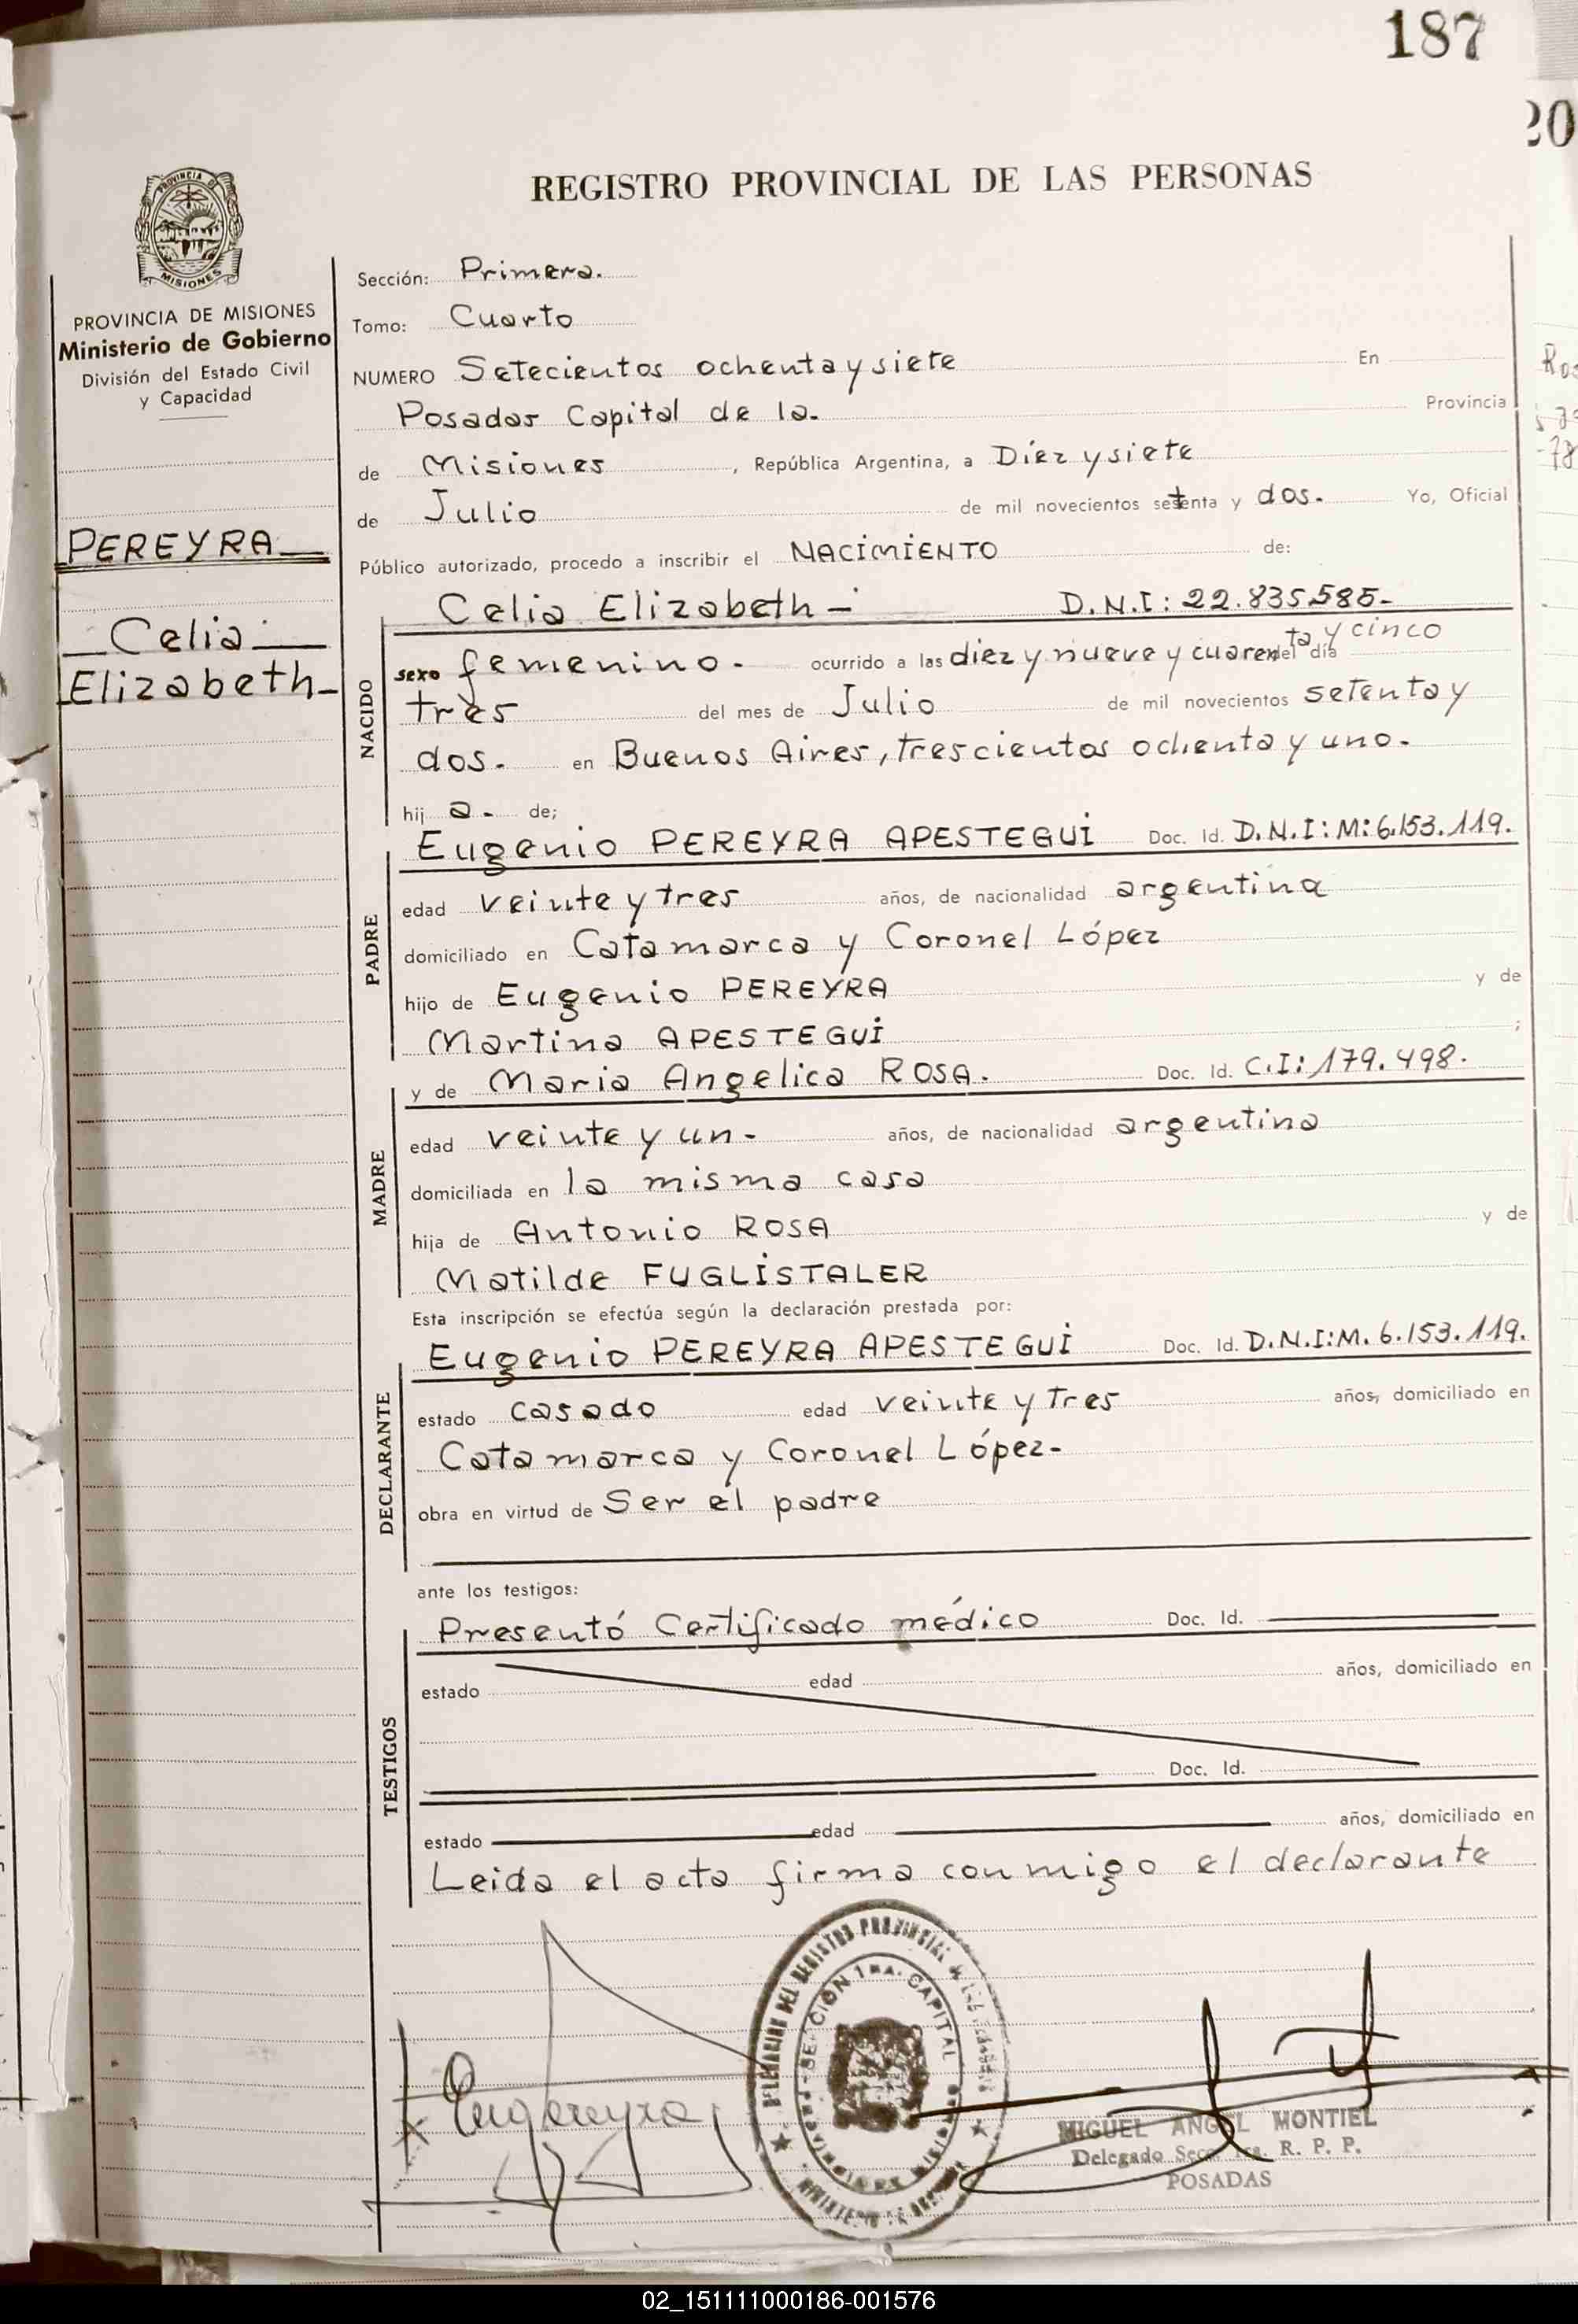 187
20
REGISTRO PROVINCIAL DE LAS PERSONAS
PROVINCIA DE
MISIONES
PROVINCIA DE MISIONES
Ministerio de Gobierno
División del Estado Civil
y Capacidad
PEREYRA
Celia
Elizabeth-
Sección: Primera.
Tomo: Cuarto
NUMERO Setecientos ochenta y siete En
Posadas Capital de la. Provincia
de Misiones, República Argentina, a Diez y siete
de Julio de mil novecientos setenta y dos. Yo, Oficial
Público autorizado, procedo a inscribir el NACIMIENTO de:
Celia Elizabeth - D.N.I: 22.835.585-
NACIDO
sexo femenino. ocurrido a las diez y nueve y cuarenta y cinco del día
tres del mes de Julio de mil novecientos setenta y
dos. en Buenos Aires, trescientos ochenta y uno.
hij a. de;
PADRE
Eugenio PEREYRA APESTEGUI Doc. Id. D.N.I: M: 6.153.119.
edad veinte y tres años, de nacionalidad argentina
domiciliado en Catamarca y Coronel López
hijo de Eugenio PEREYRA y de
Martina APESTEGUI ;
MADRE
y de Maria Angelica ROSA. Doc. Id. C.I: 179.498.
edad veinte y un - años, de nacionalidad argentina
domiciliada en la misma casa
hija de Antonio ROSA y de
Matilde FUGLISTALER
Esta inscripción se efectúa según la declaración prestada por:
DECLARANTE
Eugenio PEREYRA APESTEGUI Doc. Id. D.N.I:M. 6.153.119.
estado casado edad veinte y tres años, domiciliado en
Catamarca y Coronel López-
obra en virtud de Ser el padre
ante los testigos:
TESTIGOS
Presentó Certificado médico Doc. Id.
estado edad años, domiciliado en
Doc. Id.
estado edad años, domiciliado en
Leida el acta firma conmigo el declarante
DEL REGISTRO PROVINCIAL
SECCION 1RA. CAPITAL
MIGUEL ANGEL MONTIEL
Delegado R. P. P.
POSADAS
02_151111000186-001576